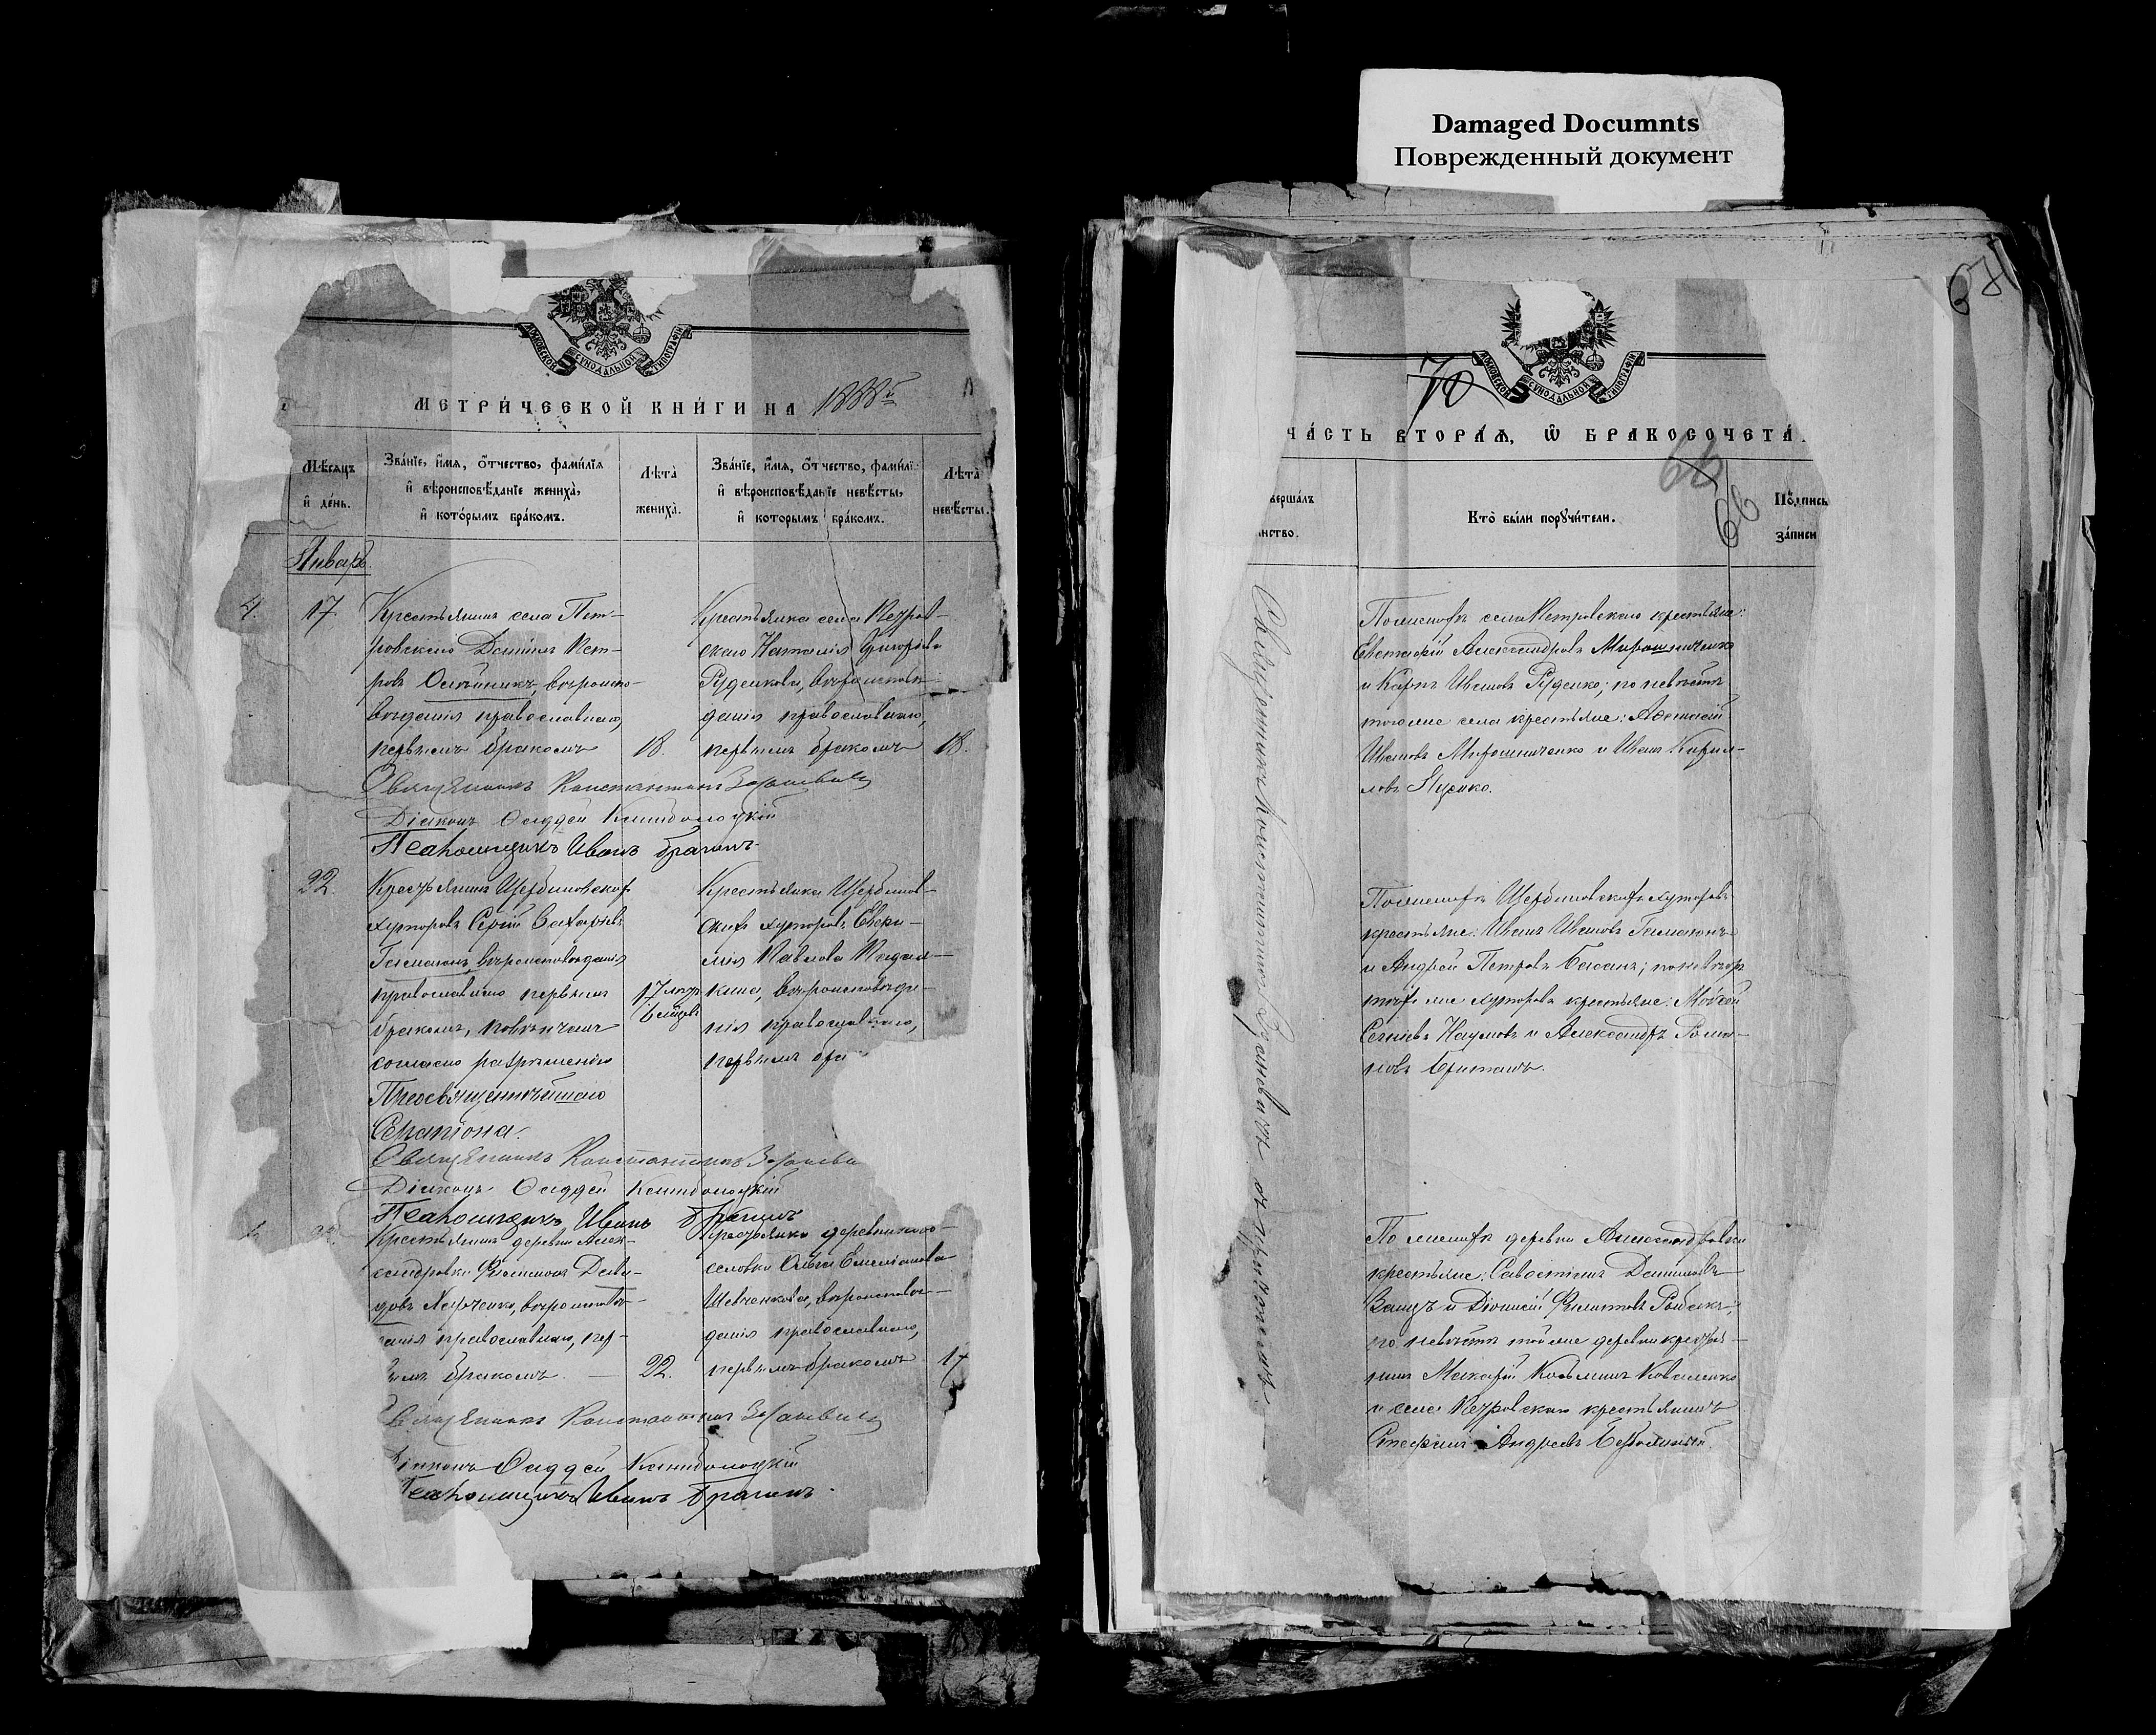 Damaged Documnts
Поврежденный документ
МОСКОВСКОЙ СѴНОДАЛЬНОЙ ТИПОГРАФІИ
МЕТРИЧЕСКОЙ КНИГИ НА 1888
Мѣсяцъ и день.
Званіе, имя, отчество, фамилія и вѣроисповѣданіе жениха, и которымъ бракомъ.
Лѣта жениха.
Званіе, имя, отчество, фамилі и вѣроисповѣданіе невѣсты, и которымъ бракомъ.
Лѣта невѣсты.
Январь
4. 17.
Крестьянинъ села Пет-
ровскаго Даніилъ Пет-
ровъ Олейникъ, вѣроиспо-
вѣданія православнаго,
первымъ бракомъ
18.
Крестьянка села Петров-
скаго Наталія Григоріева
Руденкова, вѣроисповѣ-
данія православнаго,
первымъ бракомъ
18.
Священникъ Константинъ
Діаконъ Фаддей
Псаломщикъ Иванъ Брагинъ
22.
Крестьянинъ Щербиновскихъ
хуторовъ Сергій Захаріевъ
Гамаюнъ, вѣроисповѣданія
православнаго первымъ
бракомъ, повѣнчанъ
согласно разрѣшенію
Преосвященнѣйшаго
Серапіона.
17 лѣтъ
6 мѣсяц.
Крестьянка Щербинов-
скихъ хуторовъ
Павлова
вѣроисповѣда-
нія православнаго,
первымъ бра
Священникъ Константинъ
Діаконъ Фаддей
Псаломщикъ Иванъ Брагинъ
Крестьянинъ деревни Алек-
сандровки Филимонъ Дави-
довъ Харченко, вѣроисповѣ-
данія православнаго, пер-
вымъ бракомъ.
22.
Крестьянка деревни
Ольга Емеліанова
Шевченкова, вѣроисповѣ-
данія православнаго,
первымъ бракомъ
17
Священникъ Константинъ
Діаконъ Фаддей
Псаломщикъ Иванъ Брагинъ
671
70
МОСКОВСКОЙ СѴНОДАЛЬНОЙ ТИПОГРАФІИ
ЧАСТЬ ВТОРАЯ, Ѡ БРАКОСОЧЕТА
66
66
вершалъ
инство.
Кто были поручители.
Подпись
записи
Священникъ Константинъ с причтомъ
По женихѣ села Петровскаго крестьяне:
Евстафій Александровъ Мирошниченко
и Карпъ Ивановъ Руденко; по невѣстѣ
того же села крестьяне: Афанасій
Ивановъ Мирошниченко и Иванъ Кирил-
ловъ Луценко.
По женихѣ Щербиновскихъ хуторовъ
крестьяне: Иванъ Ивановъ Гамаюнъ
и Андрей Петровъ по невѣстѣ
тѣхъ же хуторовъ крестьяне: Моѵсей
Наумовъ и Александръ Рома-
новъ
По женихѣ деревни Александровки
крестьяне: Савостіанъ Даниловъ
Заяцъ и Діонисій Филиповъ Рыбакъ;
по невѣстѣ той же деревни крестья-
нинъ Макарій Козьминъ Коваленко
и села Петровскаго крестьянинъ
Стефанъ Андреевъ